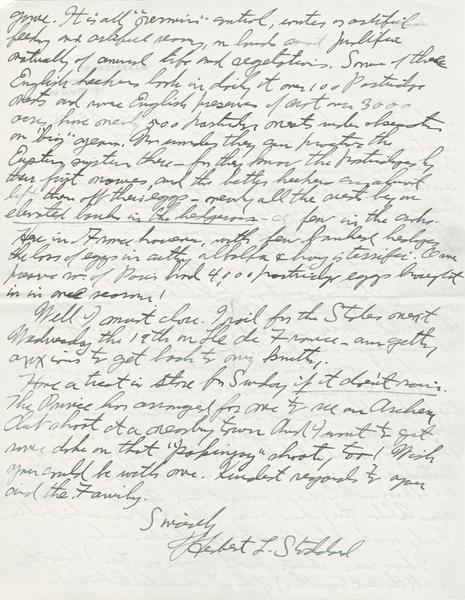 game. It is all "vermin" control, and
feeding and artificial rearing, on lands not justifiea
naturally of animal life and vegetations. Some of these
English keepers look in daily at over 100 Partridge
nests and some English preserves of not over 3000
acres have nearly 500 partridge nests under observation
on "big" years. Presumably they can practice the
Euston system there - for they know the Partridges by
their first names, and the better keepers can almost
lift them off their eggs - nearly all the nests being on
elevated banks in the hedgerows - a few in the oaks.
Here in France however, with few if any hedges
the loss of eggs in cutting alfalfa & hay is terrific. One
preserve no. of Paris had 4,000 partridge eggs brought
in in one season!
Well I must close. I sail for the States next
Wednesday the 17th on Ile de France - am getting
anxious to get back to my knitting.
Have a treat in store for Sunday if it don't rain.
The Prince has arranged for me to see an Archery
Club shoot at a nearby town And I want to get
some dope on that "popinjay" shoot, too! Wish
you could be with me. Kindest regards to you
and the Family.
Sincerely
Herbert L. Stoddard